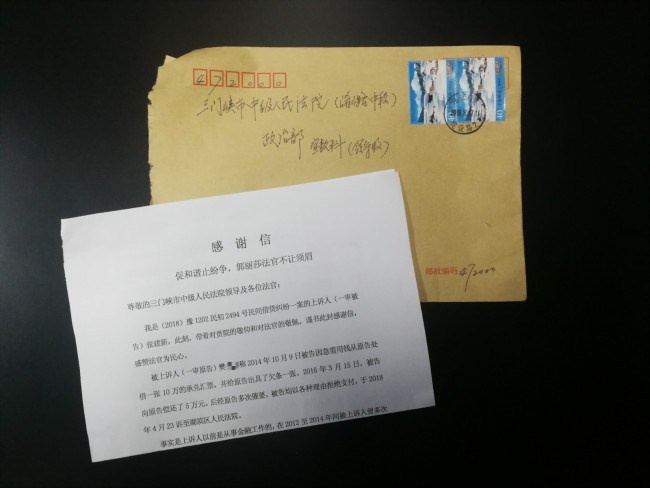 472000
三门峡市中级人民法院
政治部 宣教科(领导收)
邮政编码 472000
感谢信
促和谐止纷争,郭丽莎法官不让须眉
尊敬的三门峡市中级人民法院领导及各位法官:
我是(2018)豫1202民初2494号民间借贷纠纷一案的上诉人(一审被
告)张建新,此刻,带着对贵院的敬仰和对法官的敬佩,谨书此封感谢信,
感赞法官为民心。
被上诉人(一审原告)樊 称2014年10月9日被告因急需用钱从原告处
借一张10万的承兑汇票,并给原告出具了欠条一张。2016年3月15日,被告
向原告偿还了5万元,后经原告多次催要,被告均以各种理由拒绝支付,于2018
年4月23诉至湖滨区人民法院。
事实是上诉人以前是从事金融工作的,在2012至2014年间被上诉人曾多次